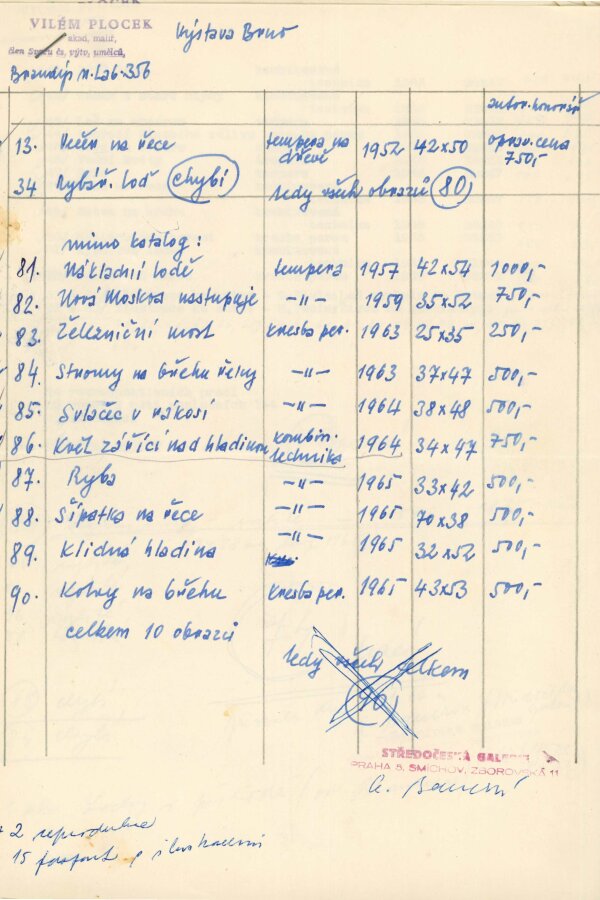 VILÉM PLOCEK
akad. malíř,
člen Svazu čs. výtv. umělců,
Výstava Brno
Brandýs n. Lab. 356
autor. honorář
13. Večer na řece tempera na dřevě 1952 42x50 oprav. cena 750,-
34 Rybář. loď chybí tedy všech obrazů 80
mimo katalog:
81. Nákladní lodě tempera 1957 42x54 1000,-
82. Nová Moskva nastupuje -"- 1959 35x52 750,-
83. Železniční most kresba per. 1963 25x35 250,-
84. Stromy na břehu řeky -"- 1963 37x47 500,-
85. Svlačec v rákosí -"- 1964 38x48 500,-
86. Květ zářící nad hladinou kombin. technika 1964 34x47 750,-
87. Ryba -"- 1965 33x42 500,-
88. Šípatka na řece -"- 1965 70x38 500,-
89. Klidná hladina -"- 1965 32x52 500,-
90. Kotvy na břehu kresba per. 1965 43x53 500,-
celkem 10 obrazů
tedy všech celkem
90
STŘEDOČESKÁ GALERIE
PRAHA 5, SMÍCHOV, ZBOROVSKÁ 11
2 reprodukce
15